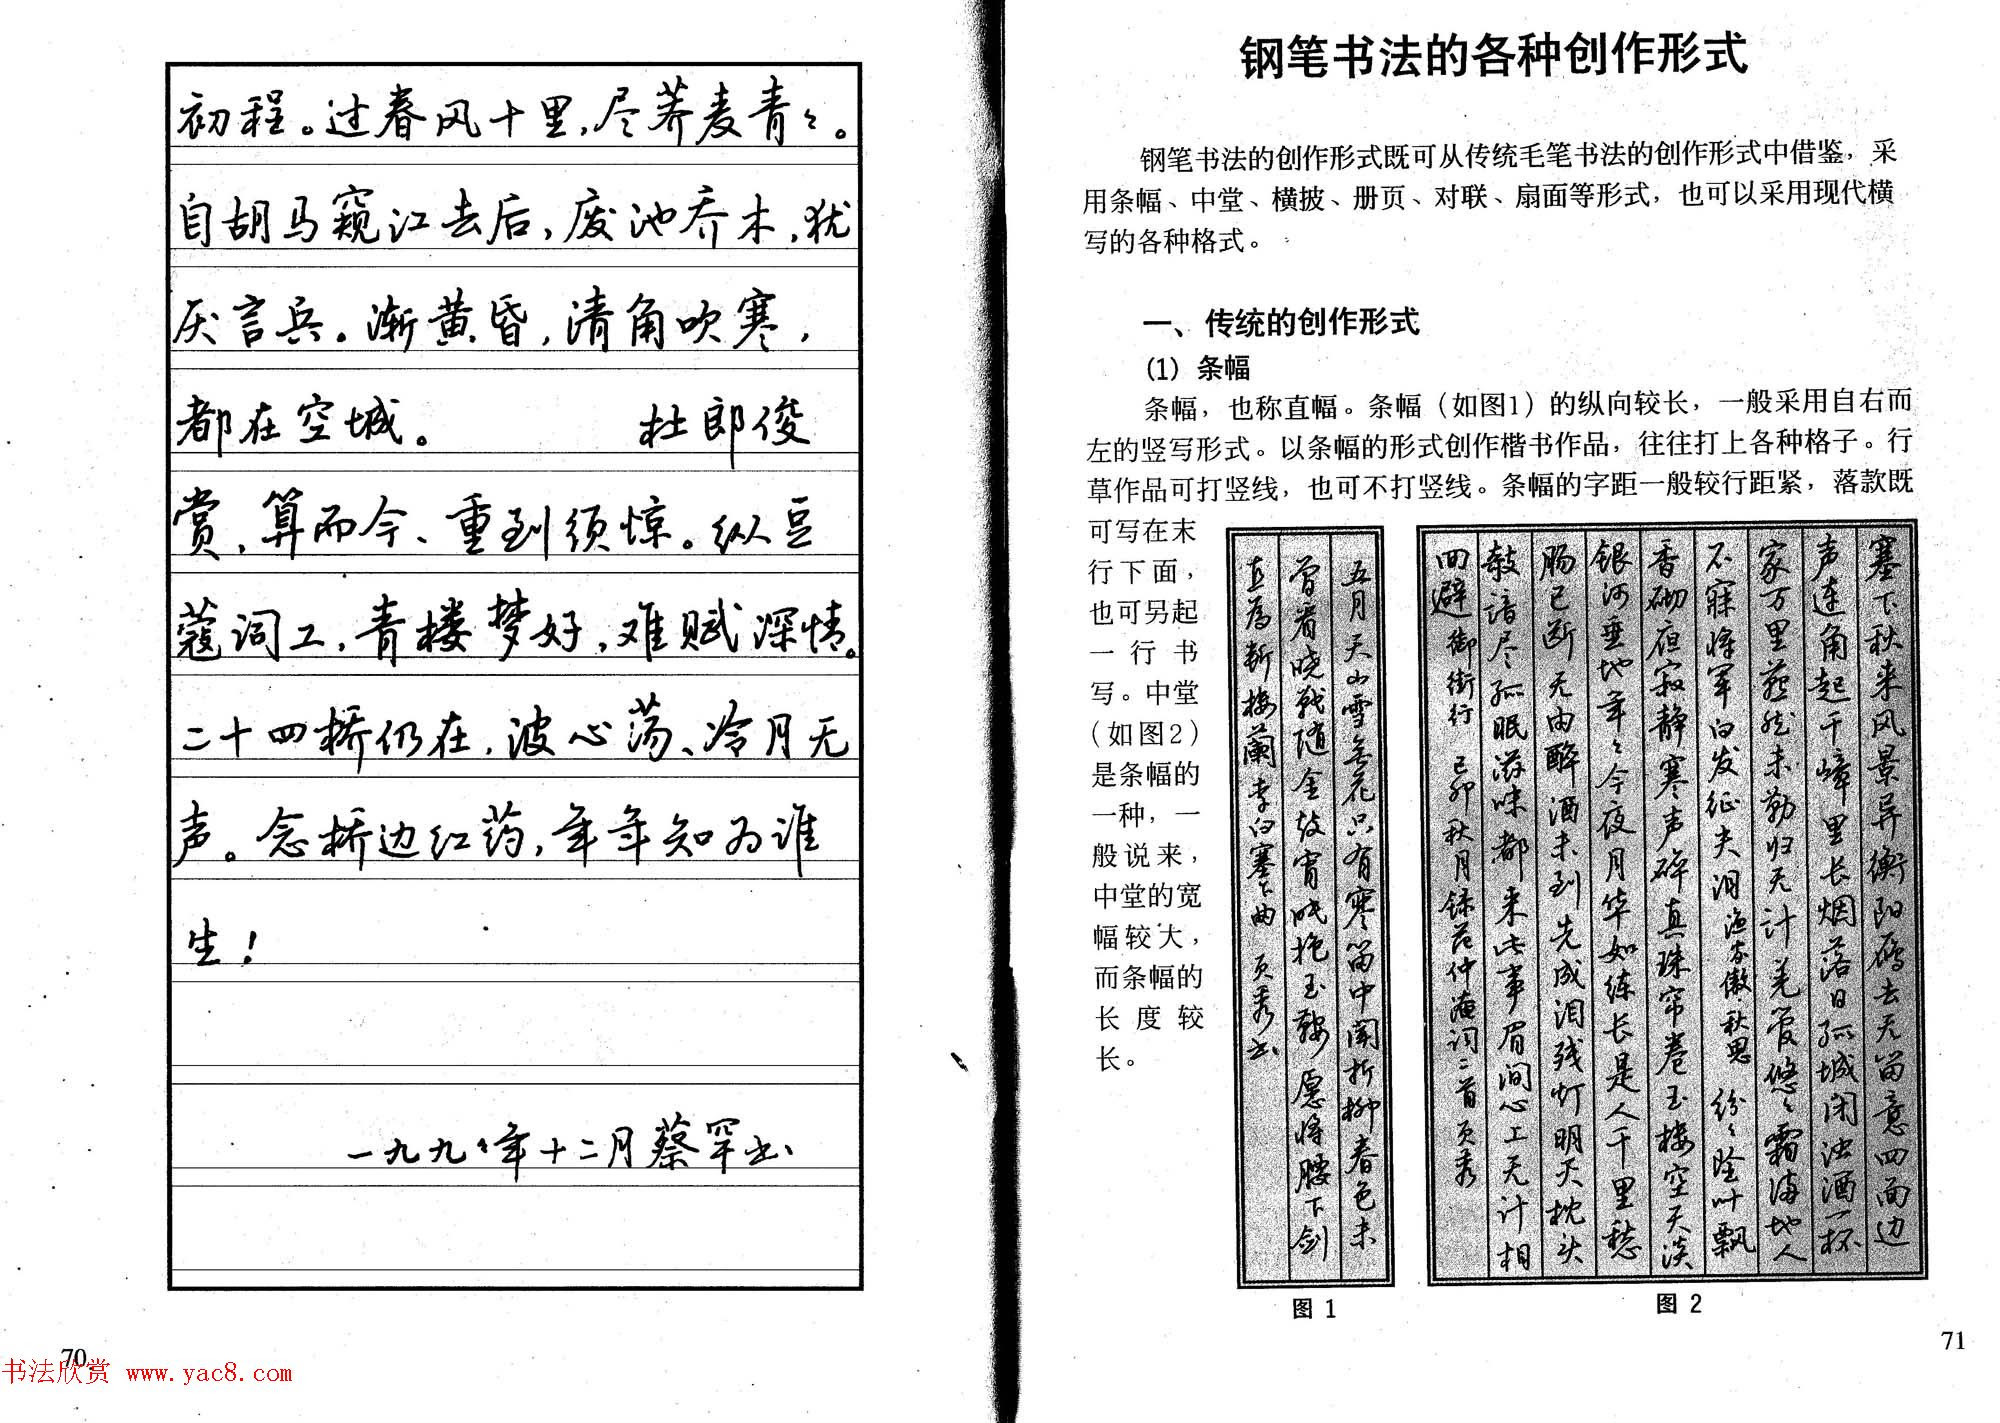 初程。过春风十里,尽荞麦青々。
自胡马窥江去后,废池乔木,犹
厌言兵。渐黄昏,清角吹寒,
都在空城。 杜郎俊
赏,算而今、重到须惊。纵豆
蔻词工,青楼梦好,难赋深情。
二十四桥仍在,波心荡、冷月无
声。念桥边红药,年年知为谁
生!
一九九〻年十二月蔡罕书
70
书法欣赏 www.yac8.com
钢笔书法的各种创作形式
钢笔书法的创作形式既可从传统毛笔书法的创作形式中借鉴，采
用条幅、中堂、横披、册页、对联、扇面等形式，也可以采用现代横
写的各种格式。
一、传统的创作形式
(1) 条幅
条幅，也称直幅。条幅（如图1）的纵向较长，一般采用自右而
左的竖写形式。以条幅的形式创作楷书作品，往往打上各种格子。行
草作品可打竖线，也可不打竖线。条幅的字距一般较行距紧，落款既
可写在末
行下面，
也可另起
一行书
写。中堂
（如图2）
是条幅的
一种，一
般说来，
中堂的宽
幅较大，
而条幅的
长度较
长。
五月天山雪无花只有寒笛中闻折柳春色未
曾看晓战随金鼓宵眠抱玉鞍愿将腰下剑
直为斩楼蘭李白塞下曲 页秀书
图 1
塞下秋来风景异衡阳雁去无留意四面边
声连角起千嶂里长烟落日孤城闭浊酒一杯
家万里燕然未勒归无计羌管悠々霜满地人
不寐将军白发征夫泪渔家傲·秋思 纷々坠叶飘
香砌夜寂静寒声碎真珠帘卷玉楼空天淡
银河垂地年々今夜月华如练长是人千里愁
肠已断无由醉酒未到先成泪残灯明灭枕头
敧谙尽孤眠滋味都来此事眉间心上无计相
回避 御街行 己卯秋月录范仲淹词二首页秀
图 2
71